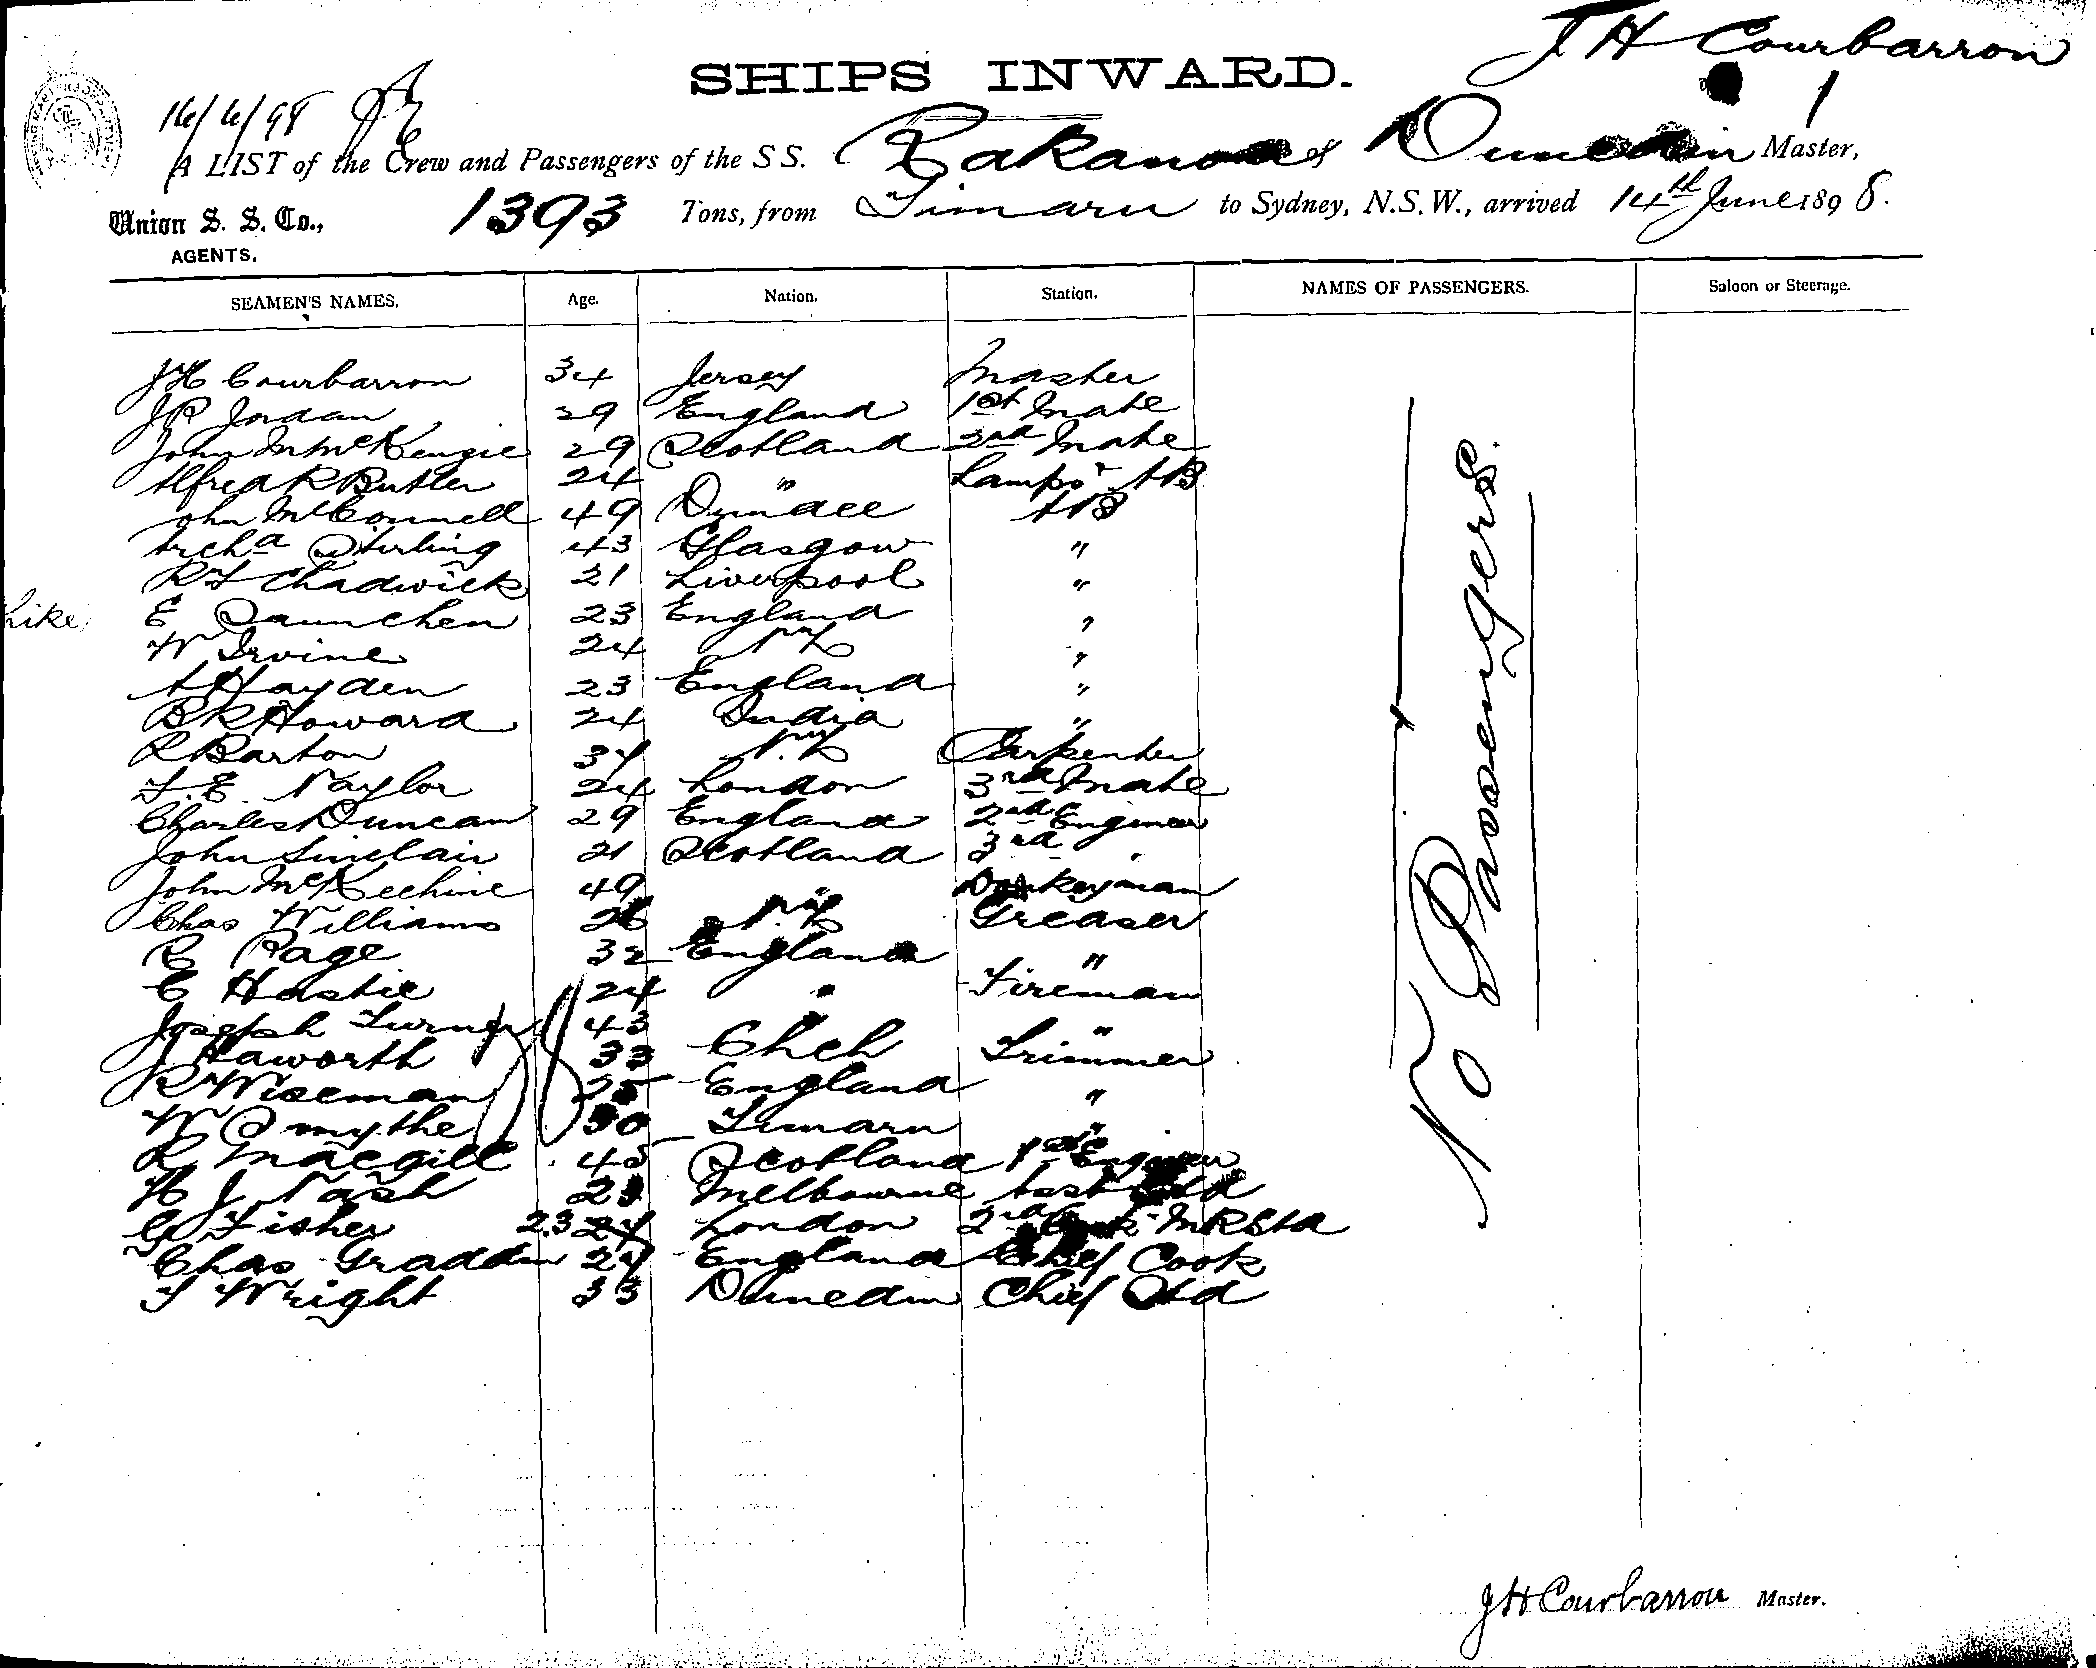 J H Courbarron
SHIPS INWARD.
16/6/98
1
A LIST of the Crew and Passengers of the S S. of Dunedin Master,
Union S. S. Co., 1393 Tons, from Timaru to Sydney, N.S.W., arrived 14th June 1898.
AGENTS.
SEAMEN'S NAMES. Age. Nation. Station. NAMES OF PASSENGERS. Saloon or Steerage.
J H Courbarron 34 Jersey Master
J R Jordan 29 England 1st Mate
John M McKenzie 29 Scotland 2nd Mate
Alfred R Butler 24 " Lamps & AB
John McConnell 49 Dundee AB
Archd Stirling 43 Glasgow "
R F Chadwick 21 Liverpool "
like E Saunchen 23 England "
W Irvine 24 NZ "
A Hayden 23 England "
B R Howard 24 India "
R Barton 34 N.Z Carpenter
T. E. Naylor 24 London 3rd Mate
Charles Duncan 29 England 2nd Engineer
John Sinclair 21 Scotland 3rd "
John McKechnie 49 " Donkeyman
Chas Williams 26 N.Z Greaser
C Page 32 England "
C Hastie 24 " Fireman
Joseph Turner 43 " "
J Haworth 33 Chch Trimmer
R Wiseman 25 England "
W Smythe 30 Timaru "
R Macgill 45 Scotland 1st Engineer
H J Nash Melbourne Asst Std
G Fisher 23 24 London 2nd Cook MRStd
Chas Graddin 27 England Chief Cook
T Wright 33 Dunedin Chief Std
No Passengers.
J H Courbarron Master.